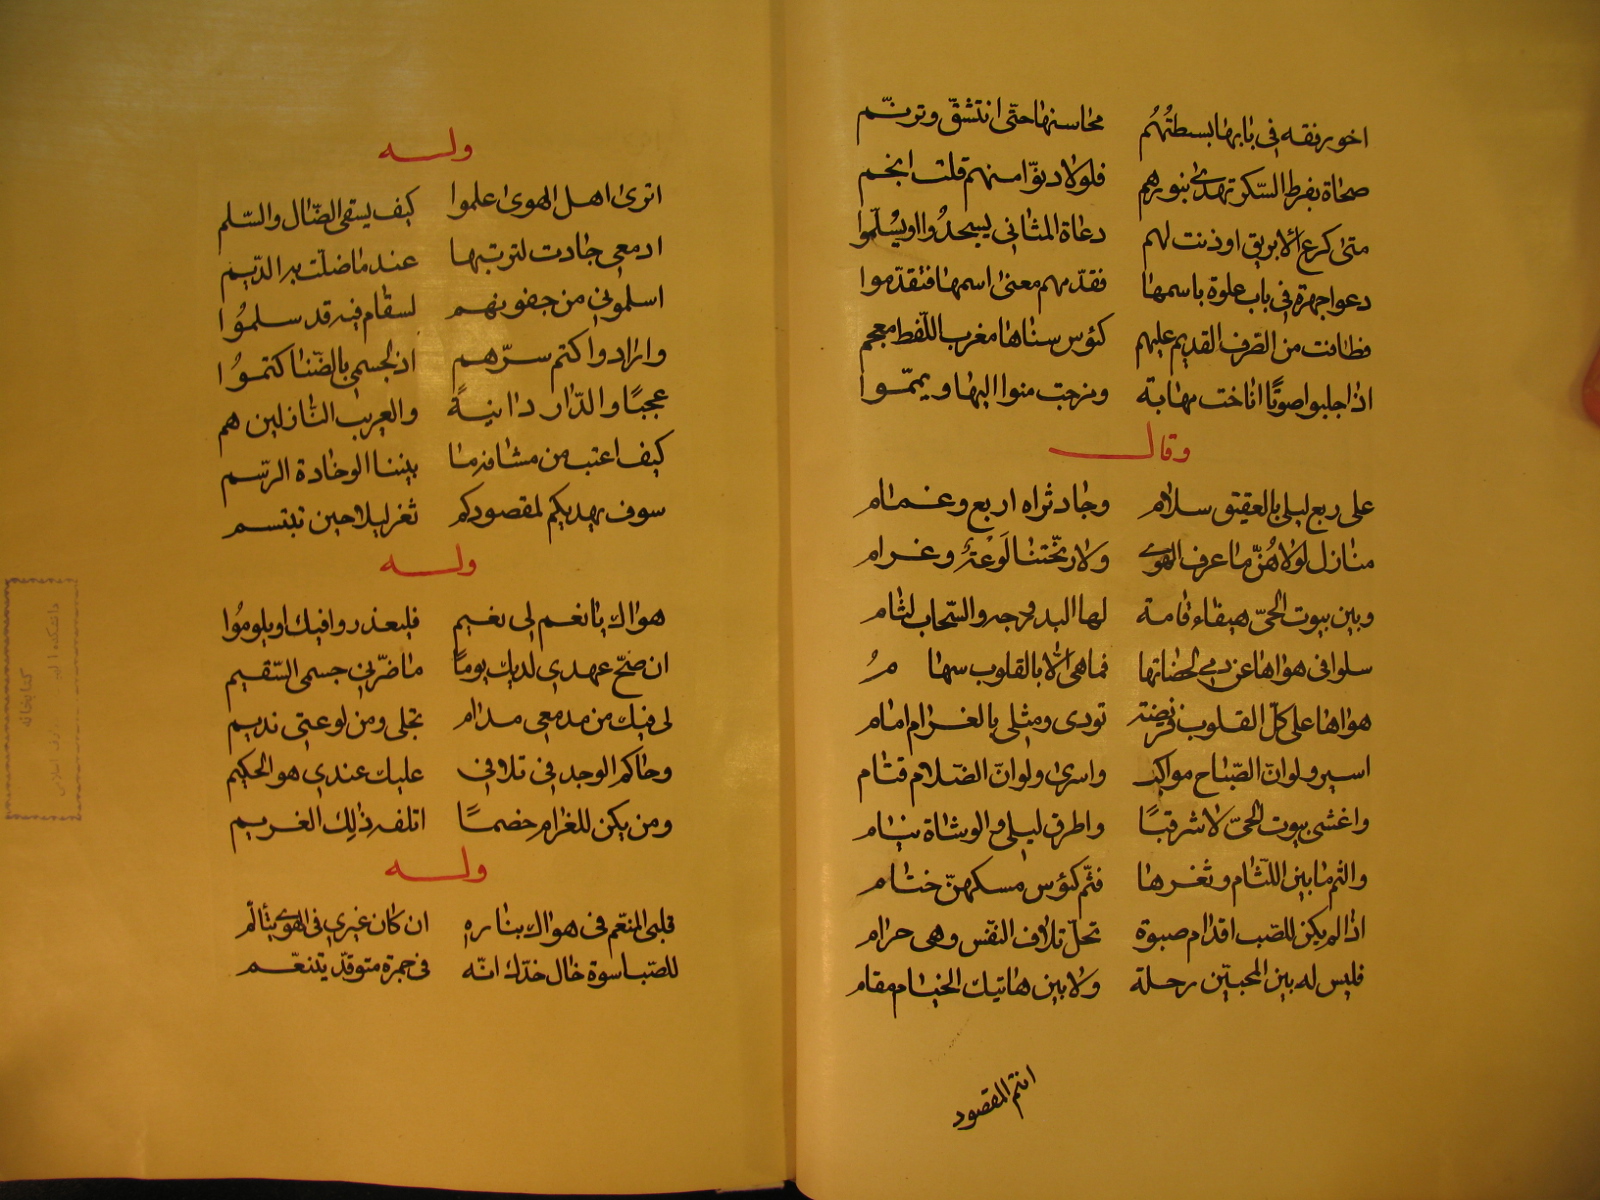 اخو رفقه فى بابها بسطتُهُم محاسنها حتّى انتشقّ وترنّم
صحاة بفرط السّكر تهدى بنورهم فلولا دنوّا منهم قلت انجم
متى كرع الابريق او ذنت لهم دعاة المثانى يسجدُوا او يسُلّموا
دعوا جهرة فى باب علوة باسمها فقدّمهم معنى اسمها فتقدّموا
فطافت من الصّرف القديم عليهم كئوس سناها مغرب اللّفظ معجم
اذا جلبوا صوتًا اناخت مهابة ومزجت منوا اليها ويممّوا
وقال
على ربع ليلى بالعقيق سلام وجاد ثراه اربع وغمام
منازل لولا هُنّ ما عرف الهوى ولا رنّحتنا لَوْعَة وغرام
وبين بيوت الحىّ هيفاء قامة لها البدر وجه والسّحاب لثام
سلوا فى هواها عن دمى لحضاتها فما هى الّا بالقلوب سهامُ
هواها على كلّ القلوب فريضة تودى ومثلى بالغرام امام
اسير ولو انّ الصّباح مواكب واسرى ولو انّ الضّلام قتام
واغشى بيوت الحىّ لا مترقبًا واطرق ليلى والوشاة نيام
والثم ما بين اللّثام وثغرها فثم كئوس مسكهنّ ختام
اذا لم يكن للصّب اقدام صبوة تحلّ تلاف النفس وهى حرام
فليس له بين المحبّين رحلة ولا بين هاتيك الخيام مقام
انتم المقصود
وله
اترى اهل الهوى علموا كيف يسقى الضّال والسّلم
ادمعى جادت لتربتها عند ما ضلّت به الدّيم
اسلمونى من جفونهم لسقام فيه قد سلمُوا
وارادوا كتم سرّهم اذ لجسمى بالضّنا كتموُا
عجبًا والدّار دانيةً والعريب النّازلين هم
كيف اعتب من مسافة ما بيننا الوخادة الرّسم
سوف يهديكم لمقصودكم ثغر ليلا حين تبتسم
وله
هواك يا نعم لى نعيم فليعذروا فيك او يلومُوا
ان صحّ عهدى لديك يومًا ما ضرّنى جسمى السّقيم
لى فيك من مدمعى مدام تجلى ومن لوعتى نديم
وحاكم الوجد فى تلافى عليك عندى هو الحكيم
ومن يكن للغرام خصمًا اتلفه ذلك الغريم
وله
قلبى المنعّم فى هواك بناره ان كان غيرى فى الهوى يتألّم
للصّب اسوة خال خدّك انّه فى جمرة متوقّد يتنعّم
كتابخانه